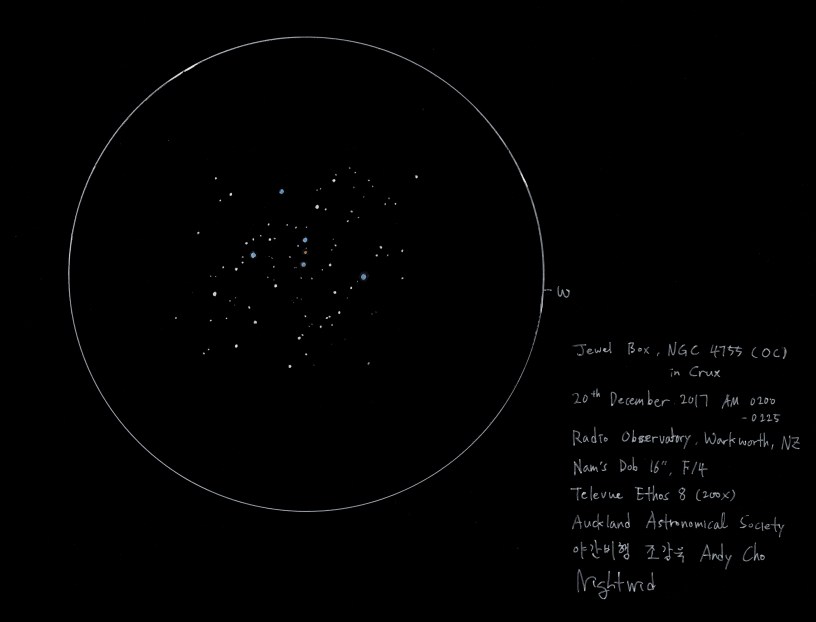 W
Jewel Box, NGC 4755 (OC)
in Crux
20th December 2017 AM 0200
-0225
Radio Observatory, Warkworth, NZ
Nam's Dob 16", F/4
Televue Ethos 8 (200x)
Auckland Astronomical Society
야간비행 조강욱 Andy Cho
Nightwid